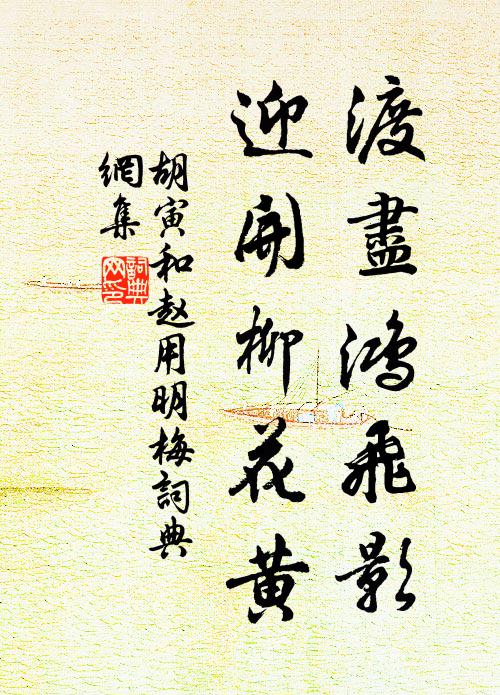 渡盡鴻飛影
迎開柳花黃
胡寅和赵用明梅詞典
網集
詞典網印